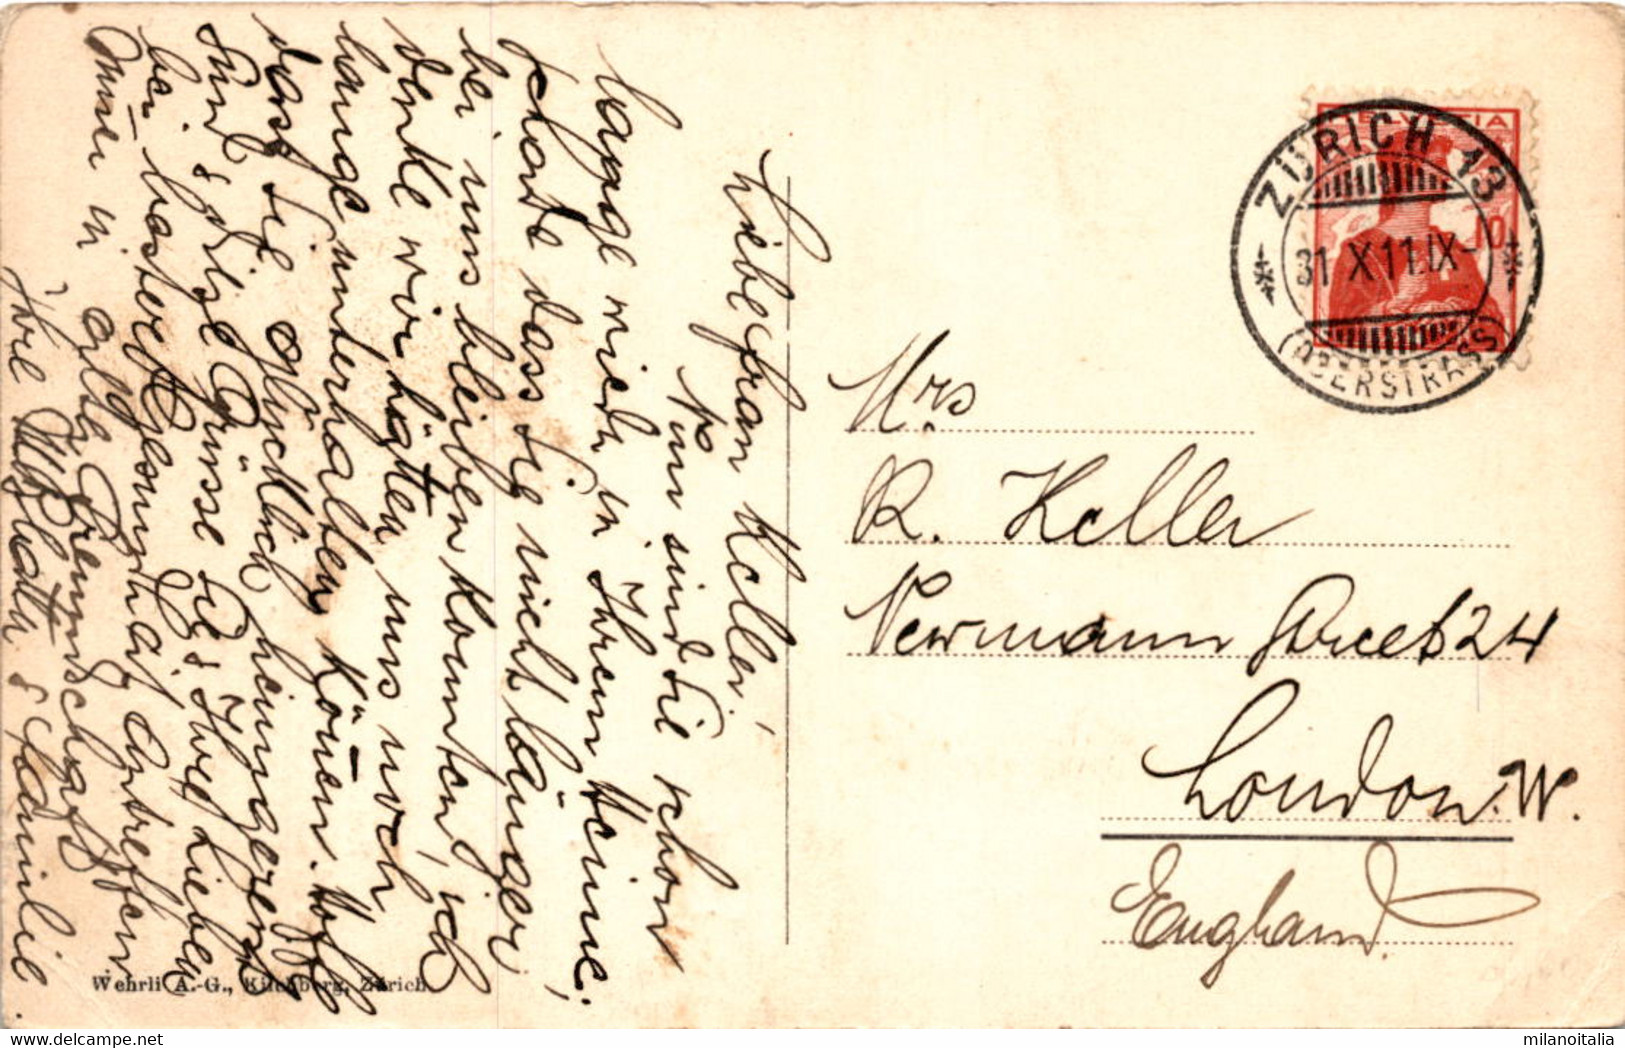 Liebe Frau Keller!
Nun sind Sie schon
lange wieder in Ihrem Heime,
schade dass Sie nicht länger
bei uns bleiben konnten, ich
denke wir hätten uns noch
lange unterhalten können. Hoffe
dass Sie glücklich heimgereist
sind & Ihre Lieben
bei bester Gesundheit antreffen
in alter Freundschaft
Ihre & Familie.
HELVETIA
10
ZÜRICH 13
31. X. 11. IX-
(OBERSTRASS)
Mrs
R. Keller
Newmann Street 24
London. W.
England.
Wehrli A.-G., Kilchberg, Zürich.
milanoitalia